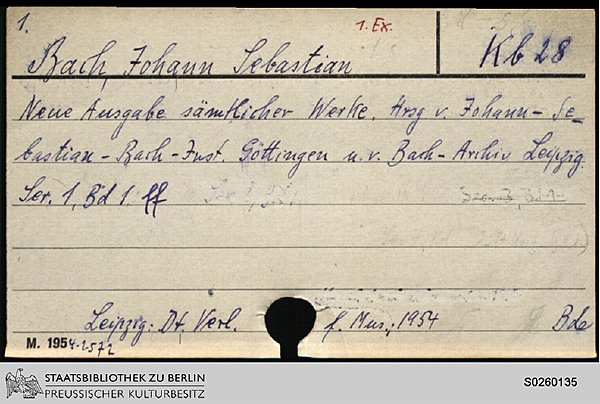 1.
1. Ex.
Bach, Johann Sebastian
Kb 28
Neue Ausgabe sämtlicher Werke. Hrsg v. Johann-Se-
bastian-Bach-Inst. Göttingen u. v. Bach-Archiv Leipzig.
Ser. 1, Bd 1. ff
Leipzig: Dt. Verl. f. Mus., 1954
Bde
M. 1954.2572
STAATSBIBLIOTHEK ZU BERLIN
PREUSSISCHER KULTURBESITZ
S0260135